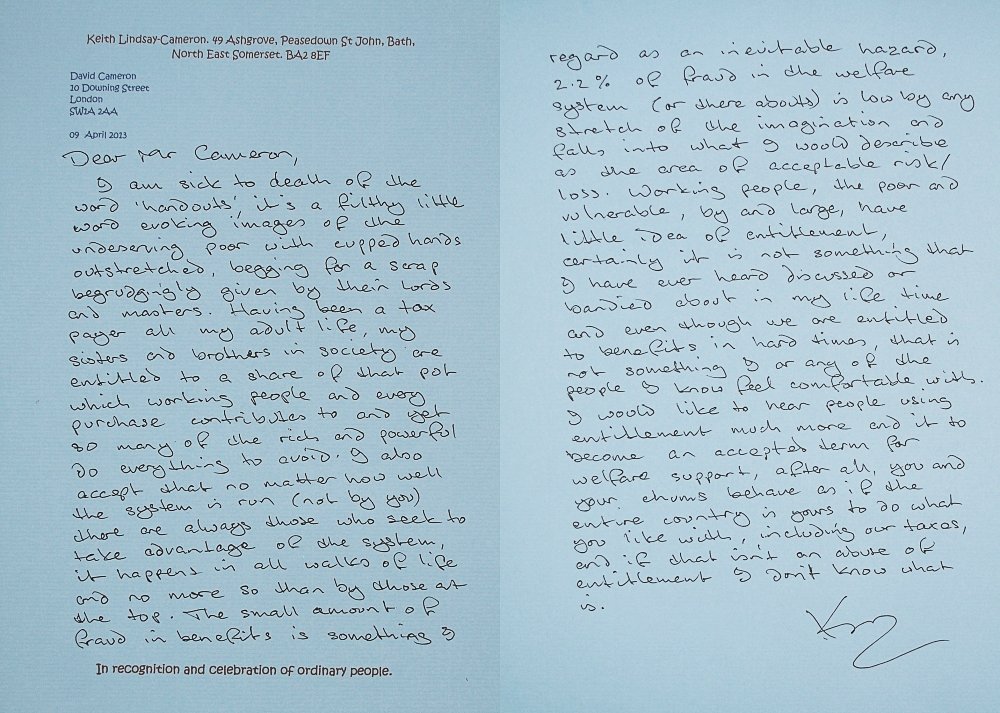 Keith Lindsay-Cameron. 49 Ashgrove, Peasedown St John, Bath,
North East Somerset. BA2 8EF
David Cameron
10 Downing Street
London
SW1A 2AA
09 April 2013
Dear Mr Cameron,
I am sick to death of the
word 'handouts', it's a filthy little
word evoking images of the
undeserving poor with cupped hands
outstretched, begging for a scrap
begrudgingly given by their lords
and masters. Having been a tax
payer all my adult life, my
sisters and brothers in society are
entitled to a share of that pot
which working people and every
purchase contributes to and yet
so many of the rich and powerful
do everything to avoid. I also
accept that no matter how well
the system is run (not by you)
there are always those who seek to
take advantage of the system,
it happens in all walks of life
and no more so than by those at
the top. The small amount of
fraud in benefits is something I
In recognition and celebration of ordinary people.
regard as an inevitable hazard,
2.2% of fraud in the welfare
system (or there abouts) is low by any
stretch of the imagination and
falls into what I would describe
as the area of acceptable risk/
loss. Working people, the poor and
vulnerable, by and large, have
little idea of entitlement,
certainly it is not something that
I have ever heard discussed or
bandied about in my life time
and even though we are entitled
to benefits in hard times, that is
not something I or any of the
people I know feel comfortable with.
I would like to hear people using
entitlement much more and it to
become an accepted term for
welfare support, after all, you and
your chums behave as if the
entire country is yours to do what
you like with, including our taxes,
and if that isn't an abuse of
entitlement I don't know what
is.